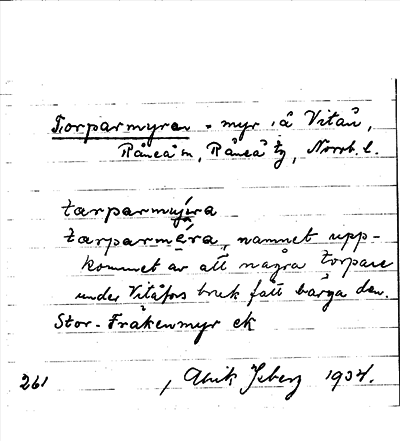 Torparmyran - myr i Vitån,
Råneå sn, Råneå tg, Norrb. l.
tarparmyra
tarparmera, namnet upp-
kommet av att några torpare
under Vitåfors bruk fått bärga den.
Stor-Fräkenmyr ek
261
Alrik 1934.